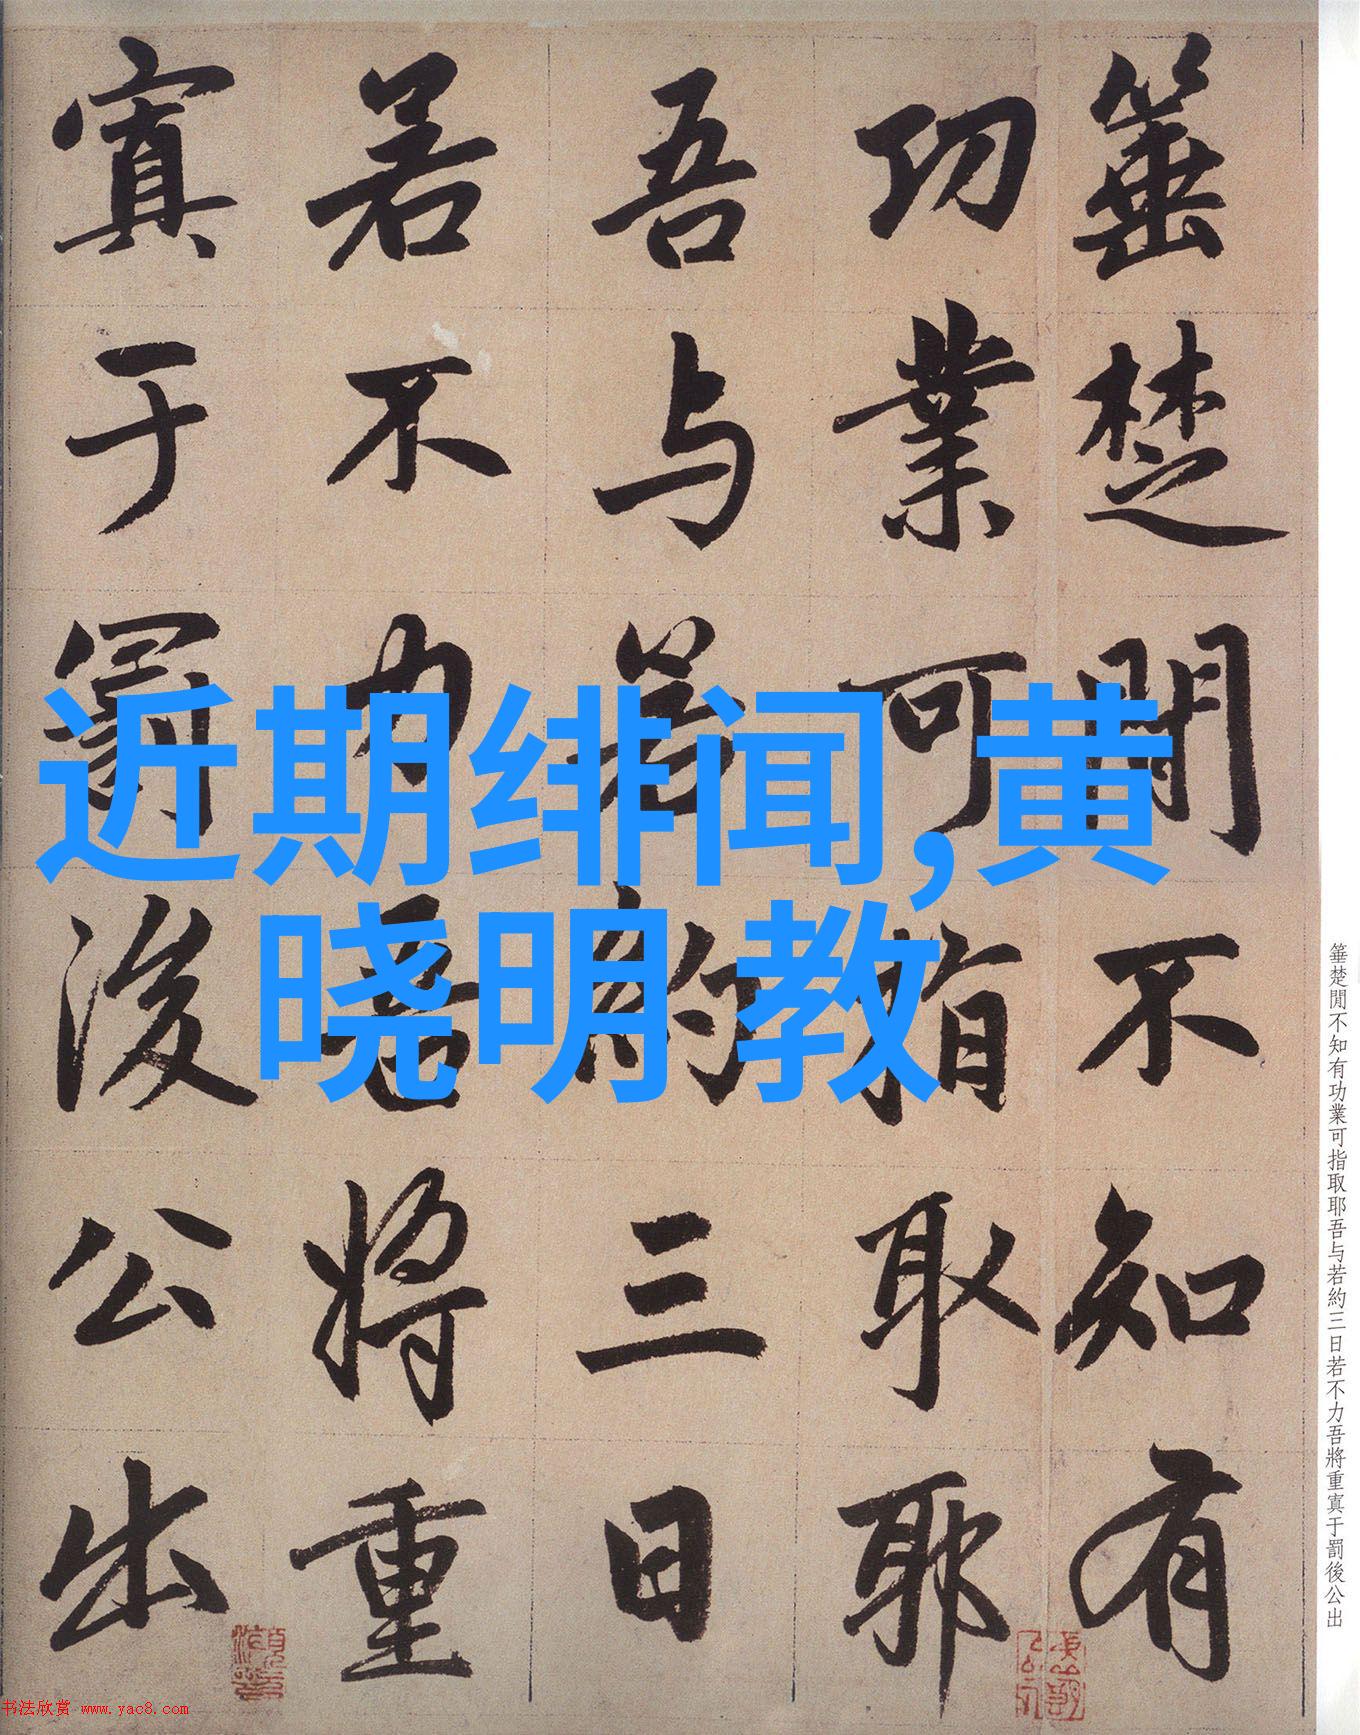 近期绯闻,黄
晓明 教
箠楚閒不知有
功業可指取耶
吾与若約三日
若不力吾將重
寘于罰後公出
箠楚閒不知有功業可指取耶吾与若約三日若不力吾將重寘于罰後公出
书法欣赏 www.yac8.com